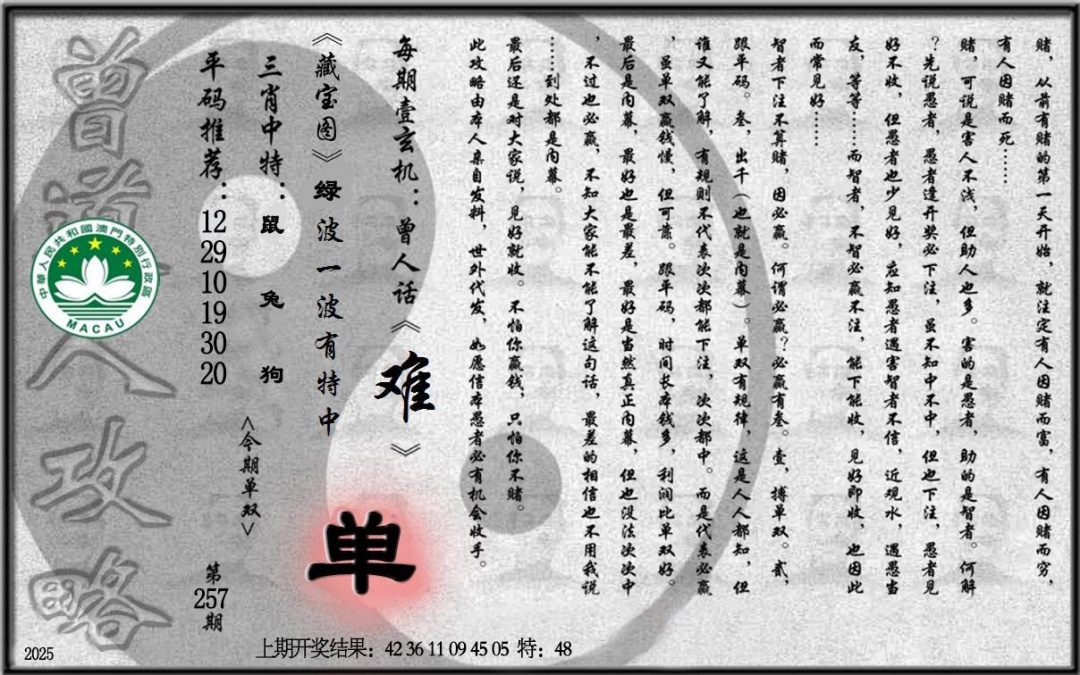 赌，从前有赌的第一天开始，就注定有人因赌而富，有人因赌而穷，
有人因赌而死……
赌，可说是害人不浅，但助人也多。害的是愚者，助的是智者。何解
？先说愚者，愚者逢开奖必下注，虽不知中不中，但也下注，愚者见
好不收，但愚者也少见好，应知愚者遇害智者不信，近观水，遇愚当
友，等等……而智者，不智必赢不注，能下能收，见好即收，也因此
而常见好……
智者下注不算赌，因必赢。何谓必赢？必赢有叁。壹，搏单双。贰，
跟单码。叁，出千（也就是内幕）。单双有规律，这是人人都知，但
谁又能了解，有规则不代表次次都能下注，次次都中。而是代表必赢
，虽单双赢钱慢，但可靠。跟单码，时间长本钱多，利润比单双好。
最后是内幕，最好也是最差，最好是当然真正内幕，但也没法次次中
，不过也必赢，不知大家能不能了解这句话，最差的相信也不用我说
……到处都是内幕。
最后还是对大家说，见好就收。不怕你赢钱，只怕你不赌。
此攻略由本人亲自发料，世外代发，如愿信本愚者必有机会收手。
每期壹玄机：曾人话《难》
《藏宝图》绿波一波有特中
单
三肖中特：鼠 兔 狗
<今期单双>
平码推荐：12 29 10 19 30 20
第257期
曾道人攻略
中華人民共和國澳門特別行政區
MACAU
2025
上期开奖结果：42 36 11 09 45 05 特：48